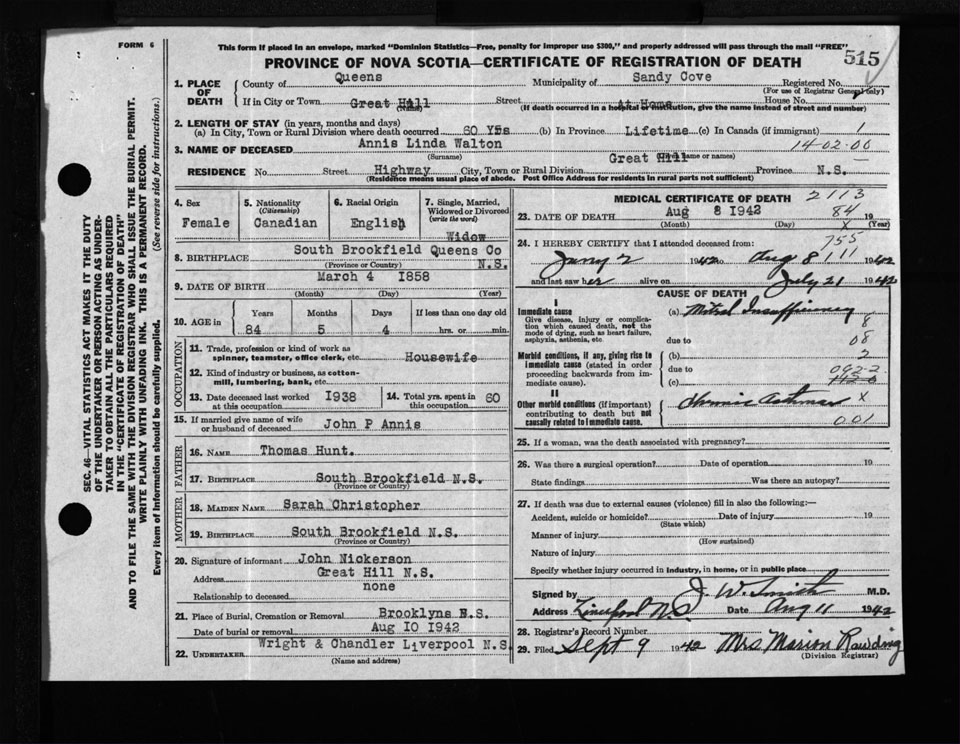 FORM 6
This form if placed in an envelope, marked "Dominion Statistics—Free, penalty for improper use $300," and properly addressed will pass through the mail "FREE"
PROVINCE OF NOVA SCOTIA—CERTIFICATE OF REGISTRATION OF DEATH
515
SEC. 46—VITAL STATISTICS ACT MAKES IT THE DUTY
OF THE UNDERTAKER OR PERSON ACTING AS UNDER-
TAKER TO OBTAIN ALL THE PARTICULARS REQUIRED
IN THE "CERTIFICATE OF REGISTRATION OF DEATH"
AND TO FILE THE SAME WITH THE DIVISION REGISTRAR WHO SHALL ISSUE THE BURIAL PERMIT.
WRITE PLAINLY WITH UNFADING INK. THIS IS A PERMANENT RECORD.
Every item of Information should be carefully supplied. (See reverse side for instructions.)
1. PLACE OF DEATH
County of Queens Municipality of Sandy Cove Registered No.
(For use of Registrar General only)
If in City or Town Great Hill Street At Home House No.
(Name) (If death occurred in a hospital or institution, give the name instead of street and number)
2. LENGTH OF STAY (in years, months and days)
(a) In City, Town or Rural Division where death occurred 60 Yrs (b) In Province Lifetime (c) In Canada (if immigrant) 1
3. NAME OF DECEASED Annis Linda Walton 14-02-00
(Surname) (Given name or names)
RESIDENCE No. Street Highway City, Town or Rural Division Great Hill Province N.S.
(Residence means usual place of abode. Post Office Address for residents in rural parts not sufficient)
4. Sex
Female
5. Nationality
(Citizenship)
Canadian
6. Racial Origin
English
7. Single, Married,
Widowed or Divorced
(write the word)
Widow
8. BIRTHPLACE South Brookfield Queens Co
N.S.
(Province or Country)
9. DATE OF BIRTH March 4 1858
(Month) (Day) (Year)
10. AGE in Years Months Days If less than one day old
84 5 4 hrs. or min.
OCCUPATION
11. Trade, profession or kind of work as
spinner, teamster, office clerk, etc. Housewife
12. Kind of industry or business, as cotton-
mill, lumbering, bank, etc.
13. Date deceased last worked
at this occupation 1938
14. Total yrs. spent in
this occupation 60
15. If married give name of wife
or husband of deceased John P Annis
FATHER
16. NAME Thomas Hunt.
17. BIRTHPLACE South Brookfield N.S.
(Province or Country)
MOTHER
18. MAIDEN NAME Sarah Christopher
19. BIRTHPLACE South Brookfield N.S.
(Province or Country)
20. Signature of informant John Nickerson
Address Great Hill N.S.
Relationship to deceased none
21. Place of Burial, Cremation or Removal Brooklyns N.S.
Date of burial or removal Aug 10 1942
22. UNDERTAKER Wright & Chandler Liverpool N.S.
(Name and address)
MEDICAL CERTIFICATE OF DEATH 2113
23. DATE OF DEATH Aug 8 1942 84 19
(Month) (Day) (Year)
X
24. I HEREBY CERTIFY that I attended deceased from: 755
Jany 2 1942 to Aug 8, 111 1942
and last saw her alive on July 21 1942
CAUSE OF DEATH
I
Immediate cause
Give disease, injury or complica-
tion which caused death, not the
mode of dying, such as heart failure,
asphyxia, asthenia, etc.
(a) Mitral Insufficiency
8
due to 08
Morbid conditions, if any, giving rise to
immediate cause (stated in order
proceeding backwards from im-
mediate cause).
(b) 2
due to 092-2
(c)
II
Other morbid conditions (if important)
contributing to death but not
causally related to immediate cause.
Chronic Asthma X
001
25. If a woman, was the death associated with pregnancy?
26. Was there a surgical operation? Date of operation 19
State findings Was there an autopsy?
27. If death was due to external causes (violence) fill in also the following:—
Accident, suicide or homicide? Date of injury 19
(State which)
Manner of injury
(How sustained)
Nature of injury
Specify whether injury occurred in industry, in home, or in public place
Signed by J. W. Smith M.D.
Address Liverpool N.S. Date Aug 11 1942
28. Registrar's Record Number
29. Filed Sept 9 1942 Mrs Marion Rawding
(Division Registrar)